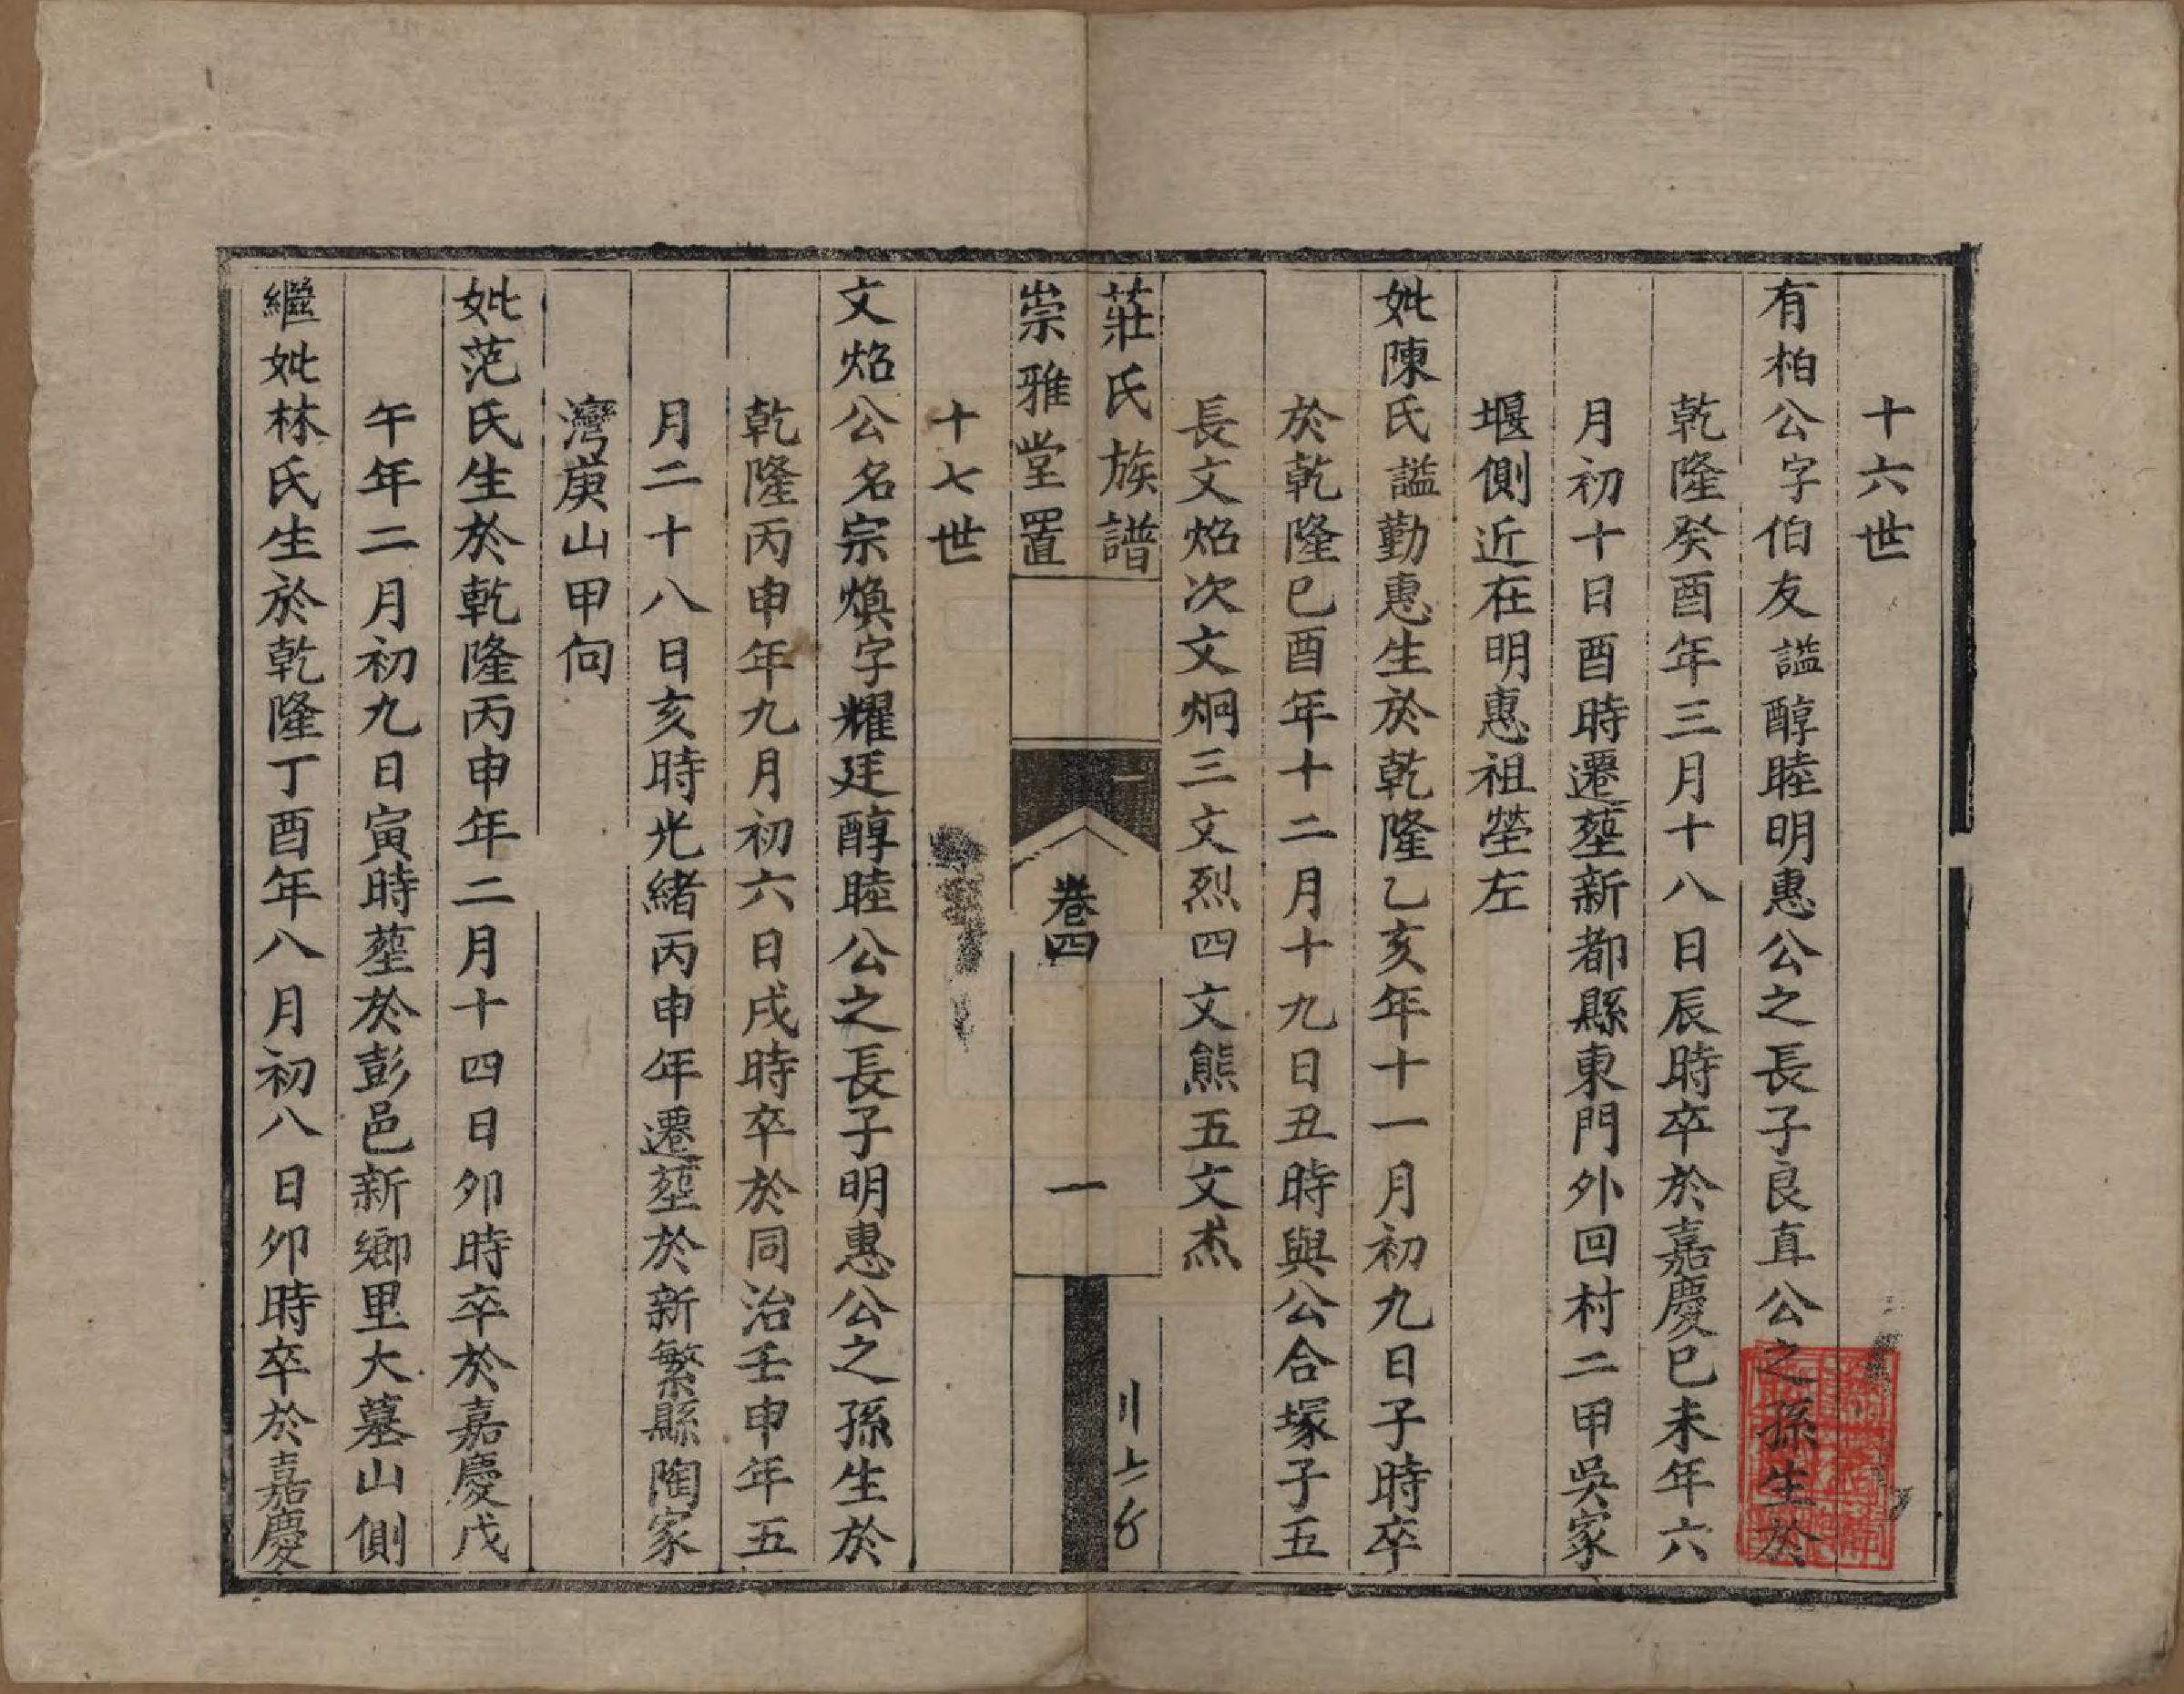 十六世
有柏公字伯友謚醇睦明惠公之長子良直公之孫生於
乾隆癸酉年三月十八日辰時卒於嘉慶已未年六
月初十日酉時遷塟新都縣東門外回村二甲吳家
堰側近在明惠祖塋左
妣陳氏謚勤惠生於乾隆乙亥年十一月初九日子時卒
於乾隆已酉年十二月十九日丑時與公合塚子五
長文焰次文炯三文烈四文熊五文杰
莊氏族譜
崇雅堂置
卷四
一
十七世
文焰公名宗煥字耀廷醇睦公之長子明惠公之孫生於
乾隆丙申年九月初六日戌時卒於同治壬申年五
月二十八日亥時光緒丙申年遷塟於新繁縣陶家
灣庚山甲向
妣范氏生於乾隆丙申年二月十四日卯時卒於嘉慶戊
午年二月初九日寅時塟於彭邑新鄉里大墓山側
繼妣林氏生於乾隆丁酉年八月初八日卯時卒於嘉慶